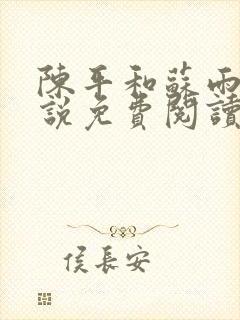 陳平和蘇雨
說免費閱讀
侯長安